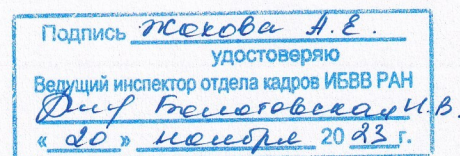 Подпись Жохова А. Е.
удостоверяю
Ведущий инспектор отдела кадров ИБВВ РАН
Болотовская Н.В.
«20» ноября 2023 г.